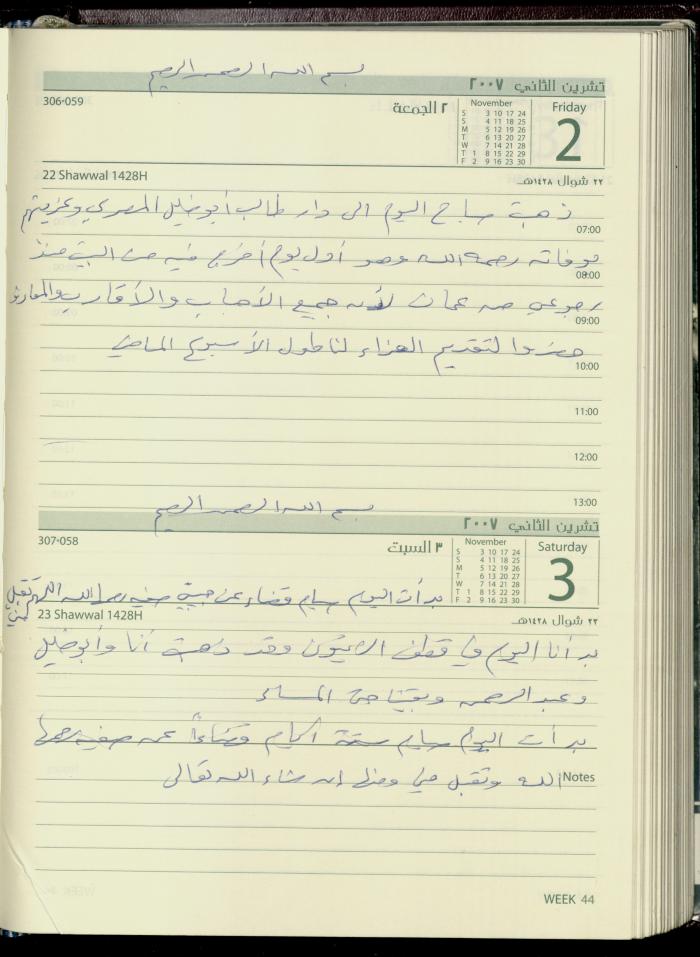 بسم الله الرحمن الرحيم
تشرين الثاني ٢٠٠٧
306-059
٢ الجمعة
November
S 3 10 17 24
S 4 11 18 25
M 5 12 19 26
T 6 13 20 27
W 7 14 21 28
T 1 8 15 22 29
F 2 9 16 23 30
Friday
2
22 Shawwal 1428H
٢٢ شوال ١٤٢٨هـ
ذهبت صباح اليوم الى دار طالب أبو خليل المصري وعزيتهم
07:00
بوفاته رحمه الله وهو أول يوم أخرج فيه من البيت منذ
08:00
رجوعي من عمان لأن جميع الأحباب والأقارب والمعارف
09:00
حضروا لتقديم العزاء لنا طول الأسبوع الماضي
10:00
11:00
12:00
13:00
بسم الله الرحمن الرحيم
تشرين الثاني ٢٠٠٧
307-058
٣ السبت
November
S 3 10 17 24
S 4 11 18 25
M 5 12 19 26
T 6 13 20 27
W 7 14 21 28
T 1 8 15 22 29
F 2 9 16 23 30
Saturday
3
بدأت اليوم صيام قضاء عن حبيبتي صفيه رحمها الله اللهم تقبل مني
23 Shawwal 1428H
٢٣ شوال ١٤٢٨هـ
بدأنا اليوم في قطف الزيتون وقد ذهبت أنا وأبو خليل
وعبد الرحمن وبقينا حتى المساء
بدأت اليوم صيام ستة أيام قضاءاً عن صفيه رحمها
الله وتقبل مني ومنها إن شاء الله تعالى
Notes
WEEK 44